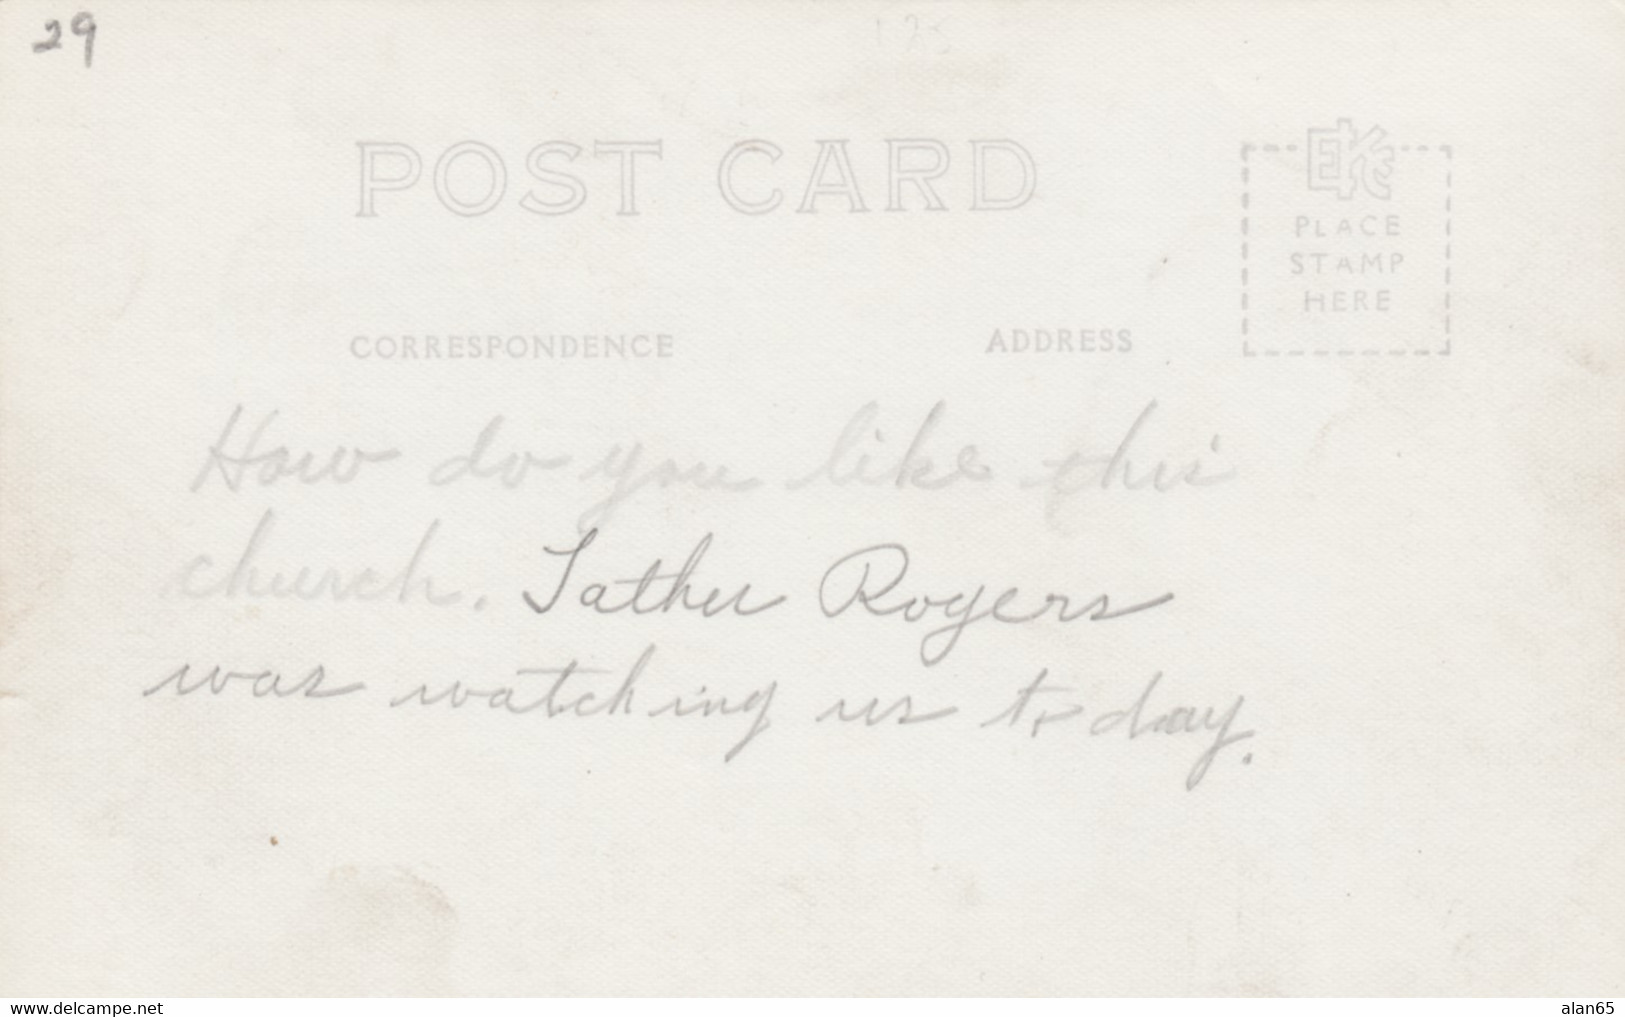 29
POST CARD
EKC
PLACE
STAMP
HERE
CORRESPONDENCE ADDRESS
How do you like this
church. Father Rogers
was watching us to day.
www.delcampe.net alan65